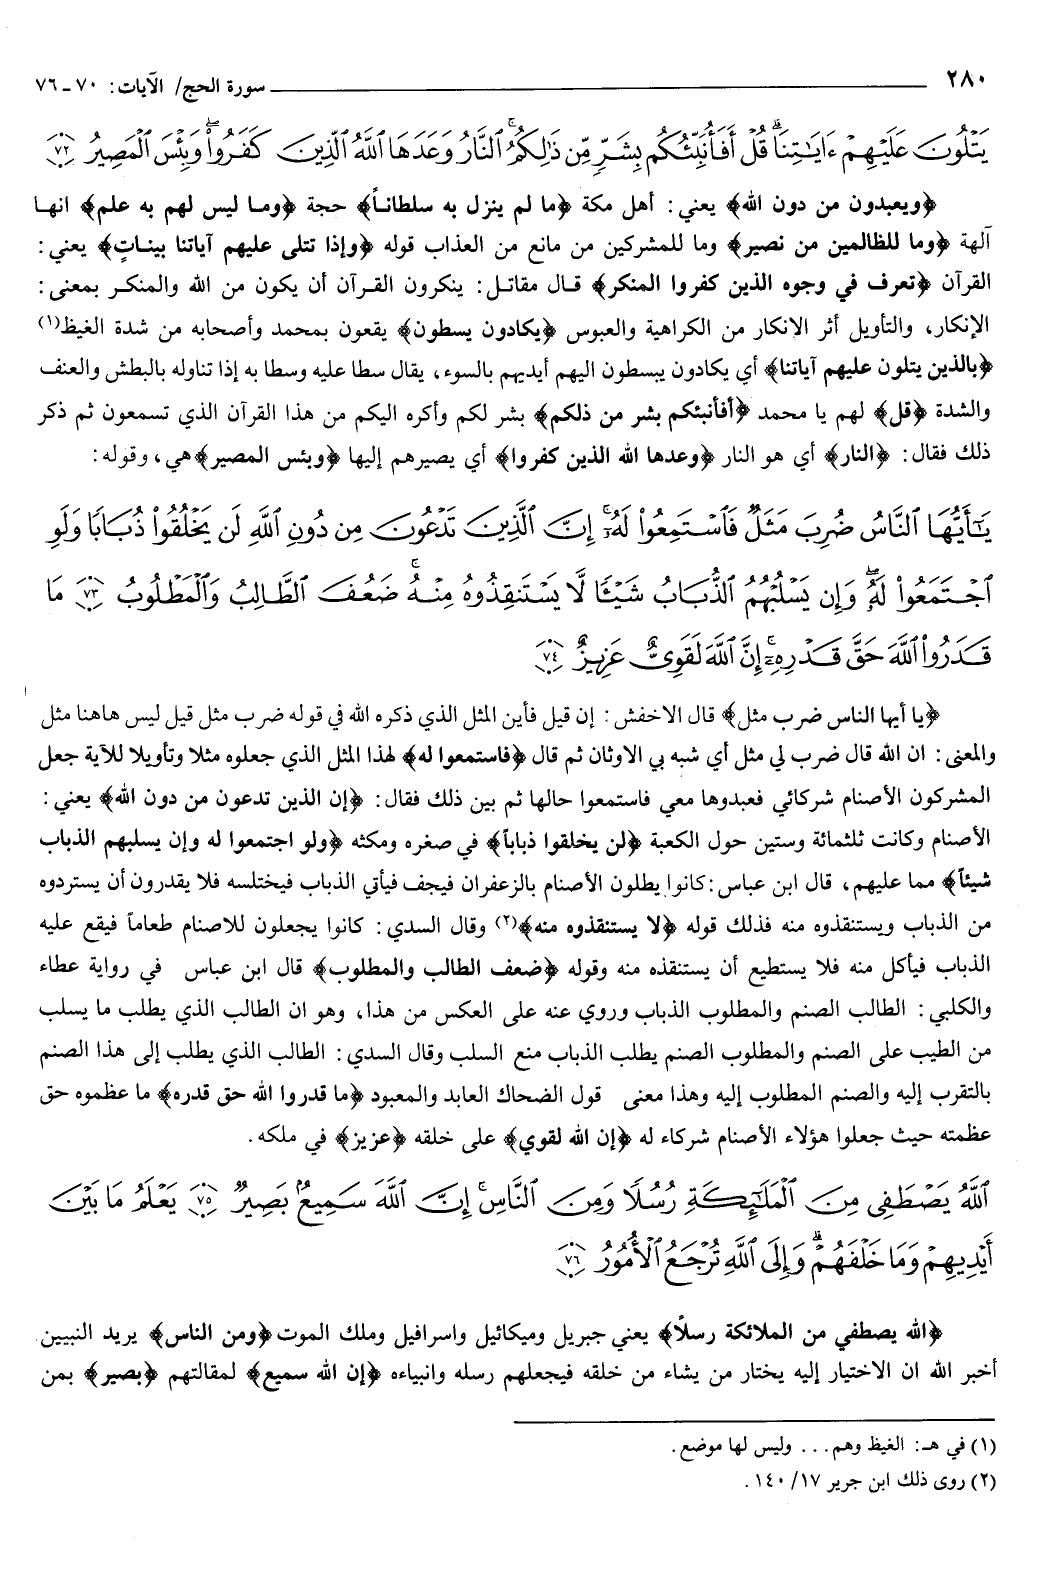 ٢٨٠ سورة الحج/ الآيات: ٧٠ ـ ٧٦
يَتْلُونَ عَلَيْهِمْ ءَايَٰتِنَا ۗ قُلْ أَفَأُنَبِّئُكُم بِشَرٍّ مِّن ذَٰلِكُمُ ۗ ٱلنَّارُ وَعَدَهَا ٱللَّهُ ٱلَّذِينَ كَفَرُوا۟ ۖ وَبِئْسَ ٱلْمَصِيرُ ٧٢
﴿ويعبدون من دون الله﴾ يعني: أهل مكة ﴿ما لم ينزل به سلطاناً﴾ حجة ﴿وما ليس لهم به علم﴾ انها
آلهة ﴿وما للظالمين من نصير﴾ وما للمشركين من مانع من العذاب قوله ﴿وإذا تتلى عليهم آياتنا بينات﴾ يعني:
القرآن ﴿تعرف في وجوه الذين كفروا المنكر﴾ قال مقاتل: ينكرون القرآن أن يكون من الله والمنكر بمعنى:
الإنكار، والتأويل أثر الانكار من الكراهية والعبوس ﴿يكادون يسطون﴾ يقعون بمحمد وأصحابه من شدة الغيظ(١)
﴿بالذين يتلون عليهم آياتنا﴾ أي يكادون يبسطون اليهم أيديهم بالسوء، يقال سطا عليه وسطا به إذا تناوله بالبطش والعنف
والشدة ﴿قل﴾ لهم يا محمد ﴿أفأنبئكم بشر من ذلكم﴾ بشر لكم وأكره اليكم من هذا القرآن الذي تسمعون ثم ذكر
ذلك فقال: ﴿النار﴾ أي هو النار ﴿وعدها الله الذين كفروا﴾ أي يصيرهم إليها ﴿وبئس المصير﴾ هي، وقوله:
يَٰٓأَيُّهَا ٱلنَّاسُ ضُرِبَ مَثَلٌ فَٱسْتَمِعُوا۟ لَهُۥٓ ۚ إِنَّ ٱلَّذِينَ تَدْعُونَ مِن دُونِ ٱللَّهِ لَن يَخْلُقُوا۟ ذُبَابًا وَلَوِ
ٱجْتَمَعُوا۟ لَهُۥ ۖ وَإِن يَسْلُبْهُمُ ٱلذُّبَابُ شَيْـًٔا لَّا يَسْتَنقِذُوهُ مِنْهُ ۚ ضَعُفَ ٱلطَّالِبُ وَٱلْمَطْلُوبُ ٧٣ مَا
قَدَرُوا۟ ٱللَّهَ حَقَّ قَدْرِهِۦٓ ۗ إِنَّ ٱللَّهَ لَقَوِىٌّ عَزِيزٌ ٧٤
﴿يا أيها الناس ضرب مثل﴾ قال الاخفش: إن قيل فأين المثل الذي ذكره الله في قوله ضرب مثل قيل ليس هاهنا مثل
والمعنى: ان الله قال ضرب لي مثل أي شبه بي الاوثان ثم قال ﴿فاستمعوا له﴾ لهذا المثل الذي جعلوه مثلا وتأويلا للآية جعل
المشركون الأصنام شركائي فعبدوها معي فاستمعوا حالها ثم بين ذلك فقال: ﴿إن الذين تدعون من دون الله﴾ يعني:
الأصنام وكانت ثلثمائة وستين حول الكعبة ﴿لن يخلقوا ذباباً﴾ في صغره ومكثه ﴿ولو اجتمعوا له وإن يسلبهم الذباب
شيئاً﴾ مما عليهم، قال ابن عباس: كانوا يطلون الأصنام بالزعفران فيجف فيأتي الذباب فيختلسه فلا يقدرون أن يستردوه
من الذباب ويستنقذوه منه فذلك قوله ﴿لا يستنقذوه منه﴾(٢) وقال السدي: كانوا يجعلون للاصنام طعاماً فيقع عليه
الذباب فيأكل منه فلا يستطيع أن يستنقذه منه وقوله ﴿ضعف الطالب والمطلوب﴾ قال ابن عباس في رواية عطاء
والكلبي: الطالب الصنم والمطلوب الذباب وروي عنه على العكس من هذا، وهو ان الطالب الذي يطلب ما يسلب
من الطيب على الصنم والمطلوب الصنم يطلب الذباب منع السلب وقال السدي: الطالب الذي يطلب إلى هذا الصنم
بالتقرب إليه والصنم المطلوب إليه وهذا معنى قول الضحاك العابد والمعبود ﴿ما قدروا الله حق قدره﴾ ما عظموه حق
عظمته حيث جعلوا هؤلاء الأصنام شركاء له ﴿إن الله لقوي﴾ على خلقه ﴿عزيز﴾ في ملكه.
ٱللَّهُ يَصْطَفِى مِنَ ٱلْمَلَٰٓئِكَةِ رُسُلًا وَمِنَ ٱلنَّاسِ ۚ إِنَّ ٱللَّهَ سَمِيعٌۢ بَصِيرٌ ٧٥ يَعْلَمُ مَا بَيْنَ
أَيْدِيهِمْ وَمَا خَلْفَهُمْ ۗ وَإِلَى ٱللَّهِ تُرْجَعُ ٱلْأُمُورُ ٧٦
﴿الله يصطفي من الملائكة رسلاً﴾ يعني جبريل وميكائيل واسرافيل وملك الموت ﴿ومن الناس﴾ يريد النبيين
أخبر الله ان الاختيار إليه يختار من يشاء من خلقه فيجعلهم رسله وانبياءه ﴿إن الله سميع﴾ لمقالتهم ﴿بصير﴾ بمن
(١) في هـ: الغيظ وهم... وليس لها موضع.
(٢) روى ذلك ابن جرير ١٧/ ١٤٠.